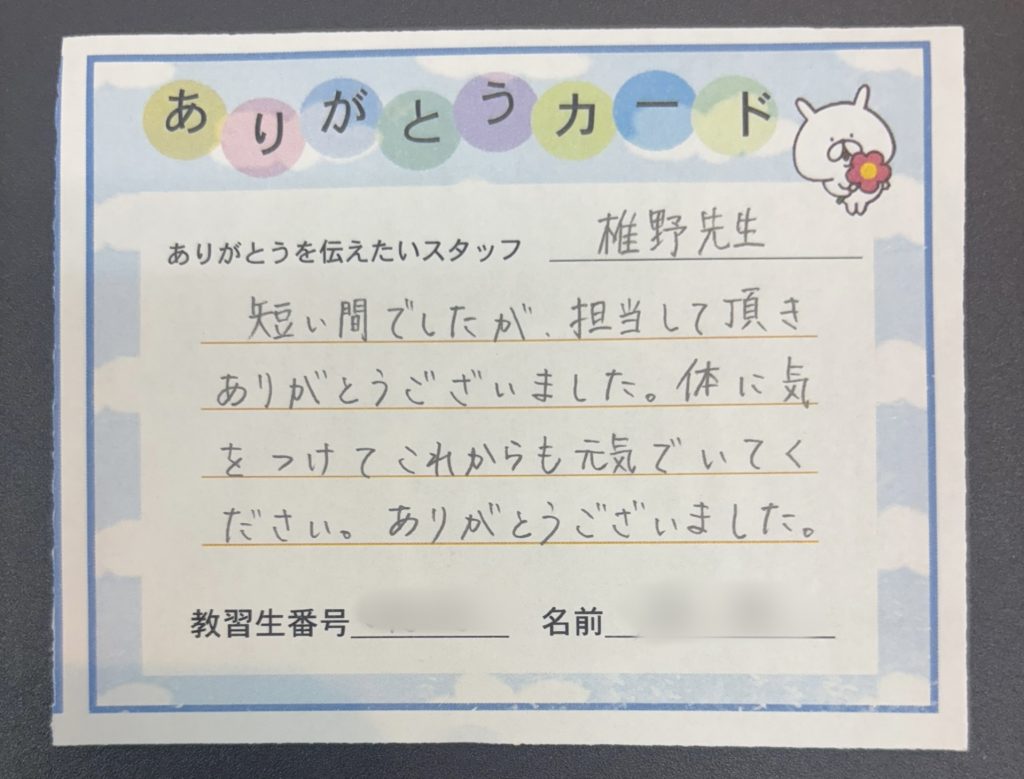 ありがとうカード
ありがとうを伝えたいスタッフ 椎野先生
短い間でしたが、担当して頂き
ありがとうございました。体に気
をつけてこれからも元気でいてく
ださい。ありがとうございました。
教習生番号 名前